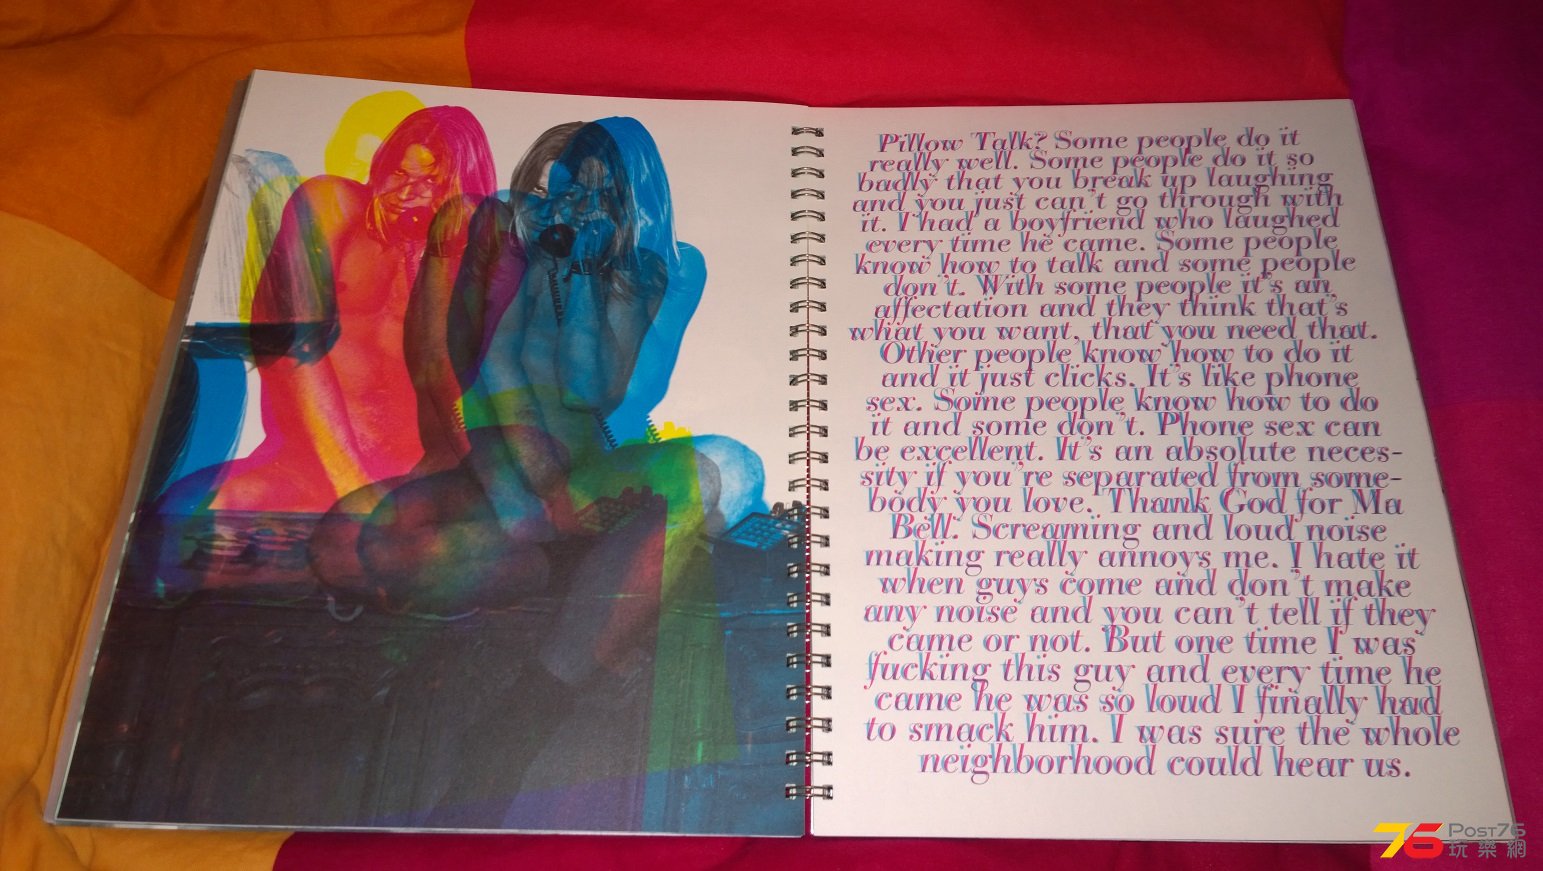 Pillow Talk? Some people do it
really well. Some people do it so
badly that you break up laughing
and you just can't go through with
it. I had a boyfriend who laughed
every time he came. Some people
know how to talk and some people
don't. With some people it's an
affectation and they think that's
what you want, that you need that.
Other people know how to do it
and it just clicks. It's like phone
sex. Some people know how to do
it and some don't. Phone sex can
be excellent. It's an absolute neces-
sity if you're separated from some-
body you love. Thank God for Ma
Bell. Screaming and loud noise
making really annoys me. I hate it
when guys come and don't make
any noise and you can't tell if they
came or not. But one time I was
fucking this guy and every time he
came he was so loud I finally had
to smack him. I was sure the whole
neighborhood could hear us.
76 POST76
玩樂網